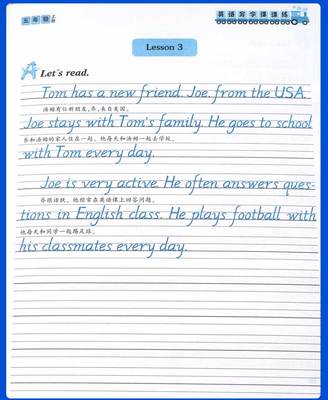 五年级 上册
英语写字课课练
Lesson 3
Let's read.
Tom has a new friend. Joe. from the USA.
汤姆有位新朋友,乔,来自美国。
Joe stays with Tom's family. He goes to school
乔和汤姆的家人住在一起。他每天和汤姆一起去学校。
with Tom every day.
Joe is very active. He often answers ques-
乔很活跃。他经常在英语课上回答问题。
tions in English class. He plays football with
他每天和同学一起踢足球。
his classmates every day.